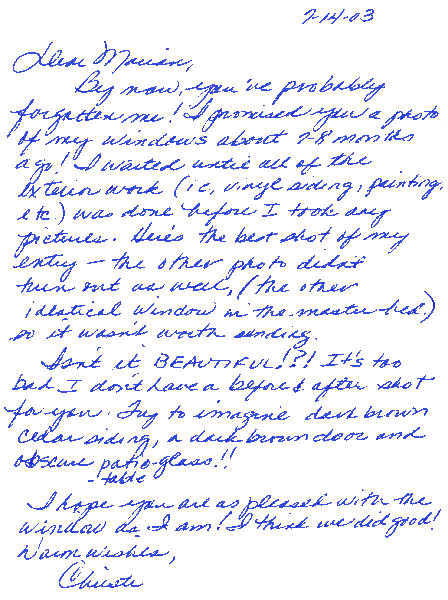 7-14-03
Dear Marian,
By now, you've probably
forgotten me! I promised you a photo
of my windows about 7-8 months
ago! I waited until all of the
exterior work (i.e, vinyl siding, painting,
etc) was done before I took any
pictures. Here's the best shot of my
entry - the other photo didn't
turn out as well, (the other
identical window in the master bed.)
so it wasn't worth sending.
Isn't it BEAUTIFUL!?! It's too
bad I don't have a before & after shot
for you. Try to imagine dark brown
cedar siding, a dark brown door and
obscure patio-glass!!
-table
I hope you are as pleased with the
window as I am! I think we did good!
Warm wishes,